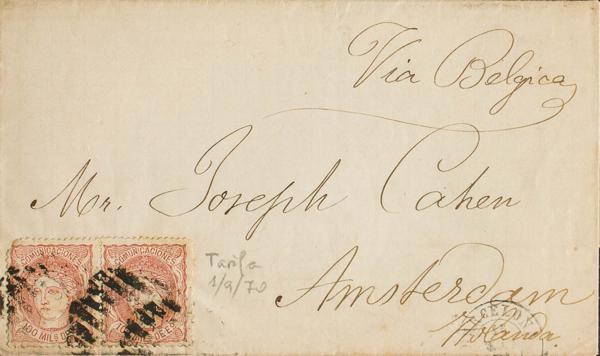 Via Belgica
Mr. Joseph Cahen
Tarifa
1/9/70
Amsterdam
Holanda.
COMUNICACIONES COMUNICACIONES
100 MILS DE